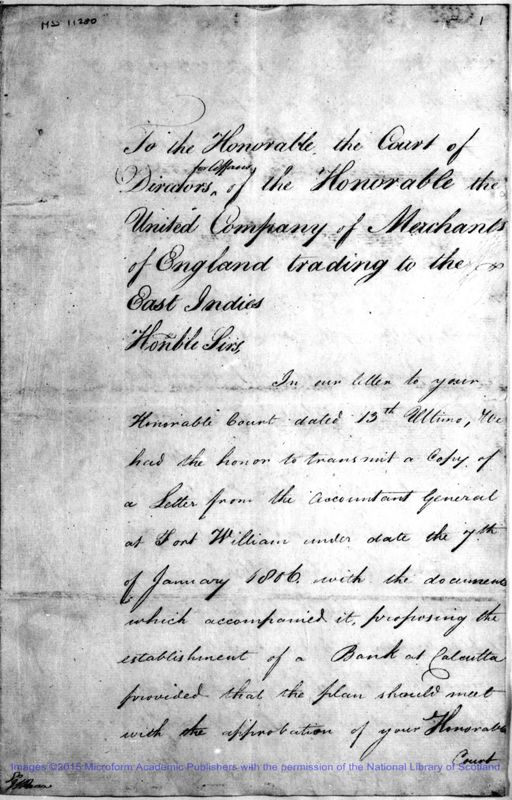 MSS 11280
1
To the Honorable, the Court of
for Affairs
Directors, of the Honorable the
United Company of Merchants
of England trading to the
East Indies
Honble Sirs,
In our letter to your
Honorable Court dated 13th Ultimo, We
had the honor to transmit a Copy of
a Letter from the Accountant General
at Fort William under date the 7th
of January 1806. with the documents
which accompanied it, proposing the
establishment of a Bank at Calcutta
provided that the plan should meet
with the approbation of your Honorable
Court
Images ©2015 Microform Academic Publishers with the permission of the National Library of Scotland